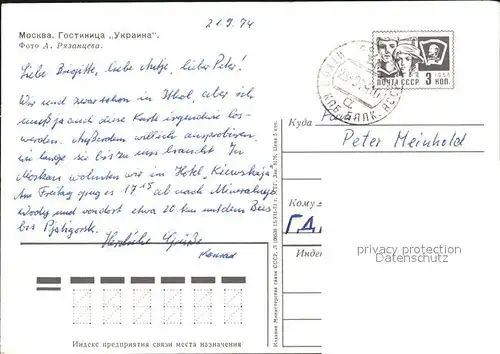 21.9.74
Москва. Гостиница „Украина".
Фото А. Рязанцева.
Liebe Brigitte, liebe Antje, lieber Peter!
Wir sind zwar schon in Itkol, aber ich
muß ja auch diese Karte irgendwie los-
werden. Außerdem will ich ausprobieren,
wie lange sie bis zu uns braucht. In
Moskau wohnten wir im Hotel „Kiewskaja".
Am Freitag ging es 17¹⁵ ab nach Mineralnyje
Wody und von dort etwa 20 km mit dem Bus
bis Pjatigorsk.
Herzliche Grüße
Konrad
ПОЧТА СССР 3 КОП.
1966
Куда
Peter Meinhold
Кому
ГД
Индекс
privacy protection
Datenschutz
Индекс предприятия связи места назначения